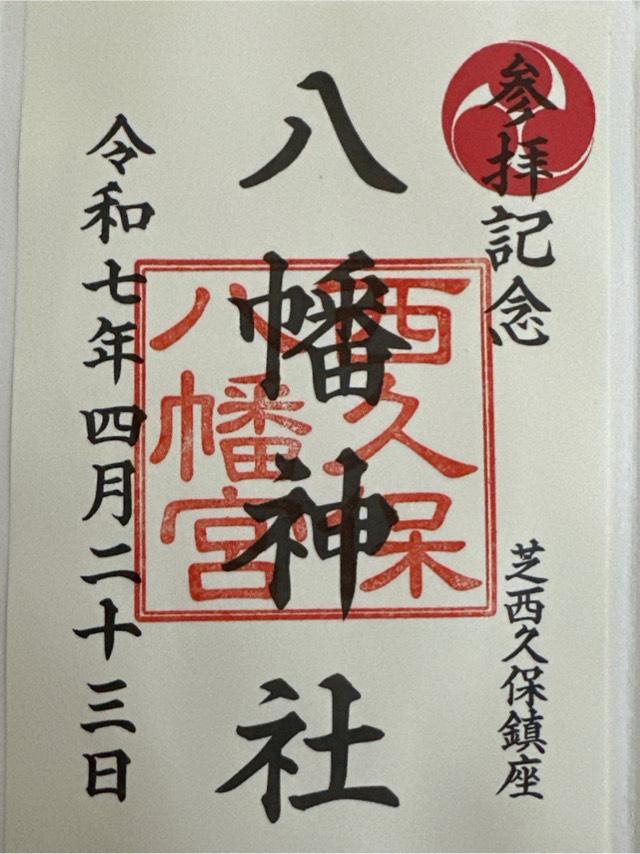 参拝記念
芝西久保鎮座
八幡神社
西久保
八幡宮
令和七年四月二十三日